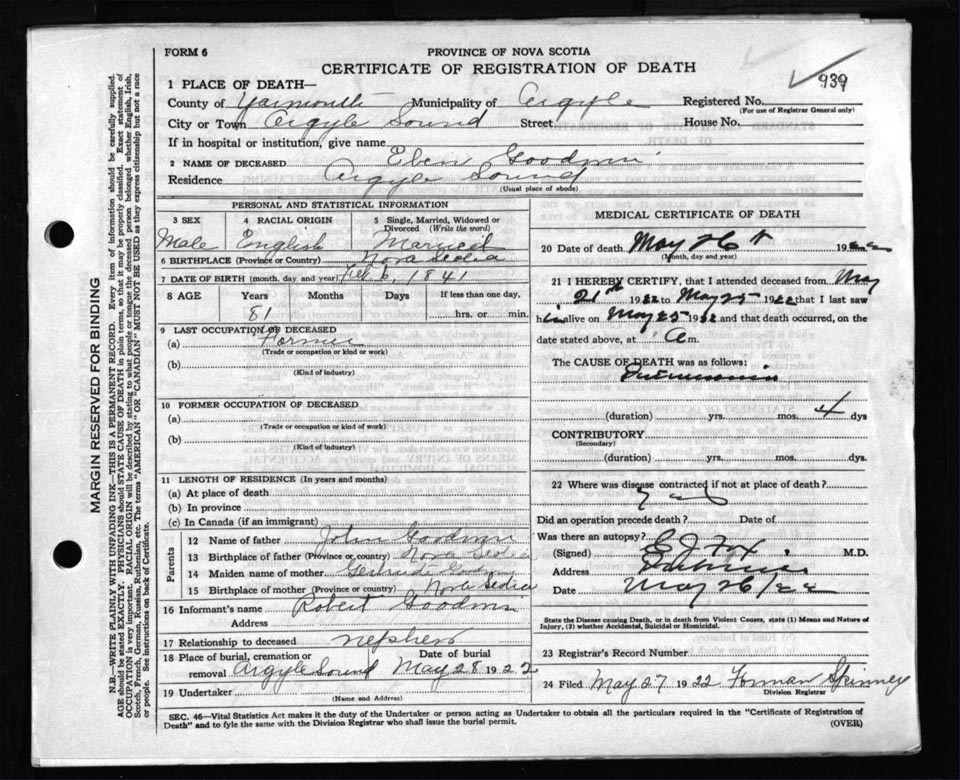 FORM 6
PROVINCE OF NOVA SCOTIA
CERTIFICATE OF REGISTRATION OF DEATH
939
1 PLACE OF DEATH—
County of Yarmouth Municipality of Argyle Registered No.
(For use of Registrar General only)
City or Town Argyle Sound Street House No.
If in hospital or institution, give name
2 NAME OF DECEASED Eben Goodwin
Residence Argyle Sound
(Usual place of abode)
PERSONAL AND STATISTICAL INFORMATION
3 SEX 4 RACIAL ORIGIN 5 Single, Married, Widowed or Divorced (Write the word)
Male English Married
6 BIRTHPLACE (Province or Country) Nova Scotia
7 DATE OF BIRTH (month, day, and year) Feb. 6, 1841
8 AGE Years Months Days If less than one day,
81 hrs. or min.
9 LAST OCCUPATION OF DECEASED
(a) Farmer
(Trade or occupation or kind or work)
(b)
(Kind of industry)
10 FORMER OCCUPATION OF DECEASED
(a)
(Trade or occupation or kind of work)
(b)
(Kind of industry)
11 LENGTH OF RESIDENCE (In years and months)
(a) At place of death
(b) In province
(c) In Canada (if an immigrant)
Parents
12 Name of father John Goodwin
13 Birthplace of father (Province or country) Nova Scotia
14 Maiden name of mother Gertrude Goodwin
15 Birthplace of mother (Province or country) Nova Scotia
16 Informant's name Robert Goodwin
Address
17 Relationship to deceased nephew
18 Place of burial, cremation or removal Argyle Sound Date of burial May 28 1922
19 Undertaker
(Name and Address)
MEDICAL CERTIFICATE OF DEATH
20 Date of death May 26 1922
(Month, day and year)
21 I HEREBY CERTIFY, that I attended deceased from May
21st 1922 to May 25 1922 that I last saw
him alive on May 25 1922 and that death occurred, on the
date stated above, at A m.
The CAUSE OF DEATH was as follows:
Pneumonia
(duration) yrs. mos. 4 dys
CONTRIBUTORY
(Secondary)
(duration) yrs. mos. dys.
22 Where was disease contracted if not at place of death?
Did an operation precede death? Date of
Was there an autopsy?
(Signed) E J Fox M.D.
Address
Date May 26/22
State the Disease causing Death, or in death from Violent Causes, state (1) Means and Nature of Injury, (2) whether Accidental, Suicidal or Homicidal.
23 Registrar's Record Number
24 Filed May 27 1922 Forman Spinney
Division Registrar
SEC. 46—Vital Statistics Act makes it the duty of the Undertaker or person acting as Undertaker to obtain all the particulars required in the "Certificate of Registration of
Death" and to fyle the same with the Division Registrar who shall issue the burial permit.
(OVER)
MARGIN RESERVED FOR BINDING
N.B.—WRITE PLAINLY WITH UNFADING INK—THIS IS A PERMANENT RECORD. Every item of information should be carefully supplied.
AGE should be stated EXACTLY. PHYSICIANS should STATE CAUSE OF DEATH in plain terms, so that it may be properly classified. Exact statement of
OCCUPATION is very important. RACIAL ORIGIN will be described by stating to what people or tongue the deceased person belonged whether English, Irish,
Scotch, French, German, Russian, Ruthenian, etc. The terms "AMERICAN" OR "CANADIAN" MUST NOT BE USED as they express citizenship but not a race
or people. See instructions on back of Certificate.